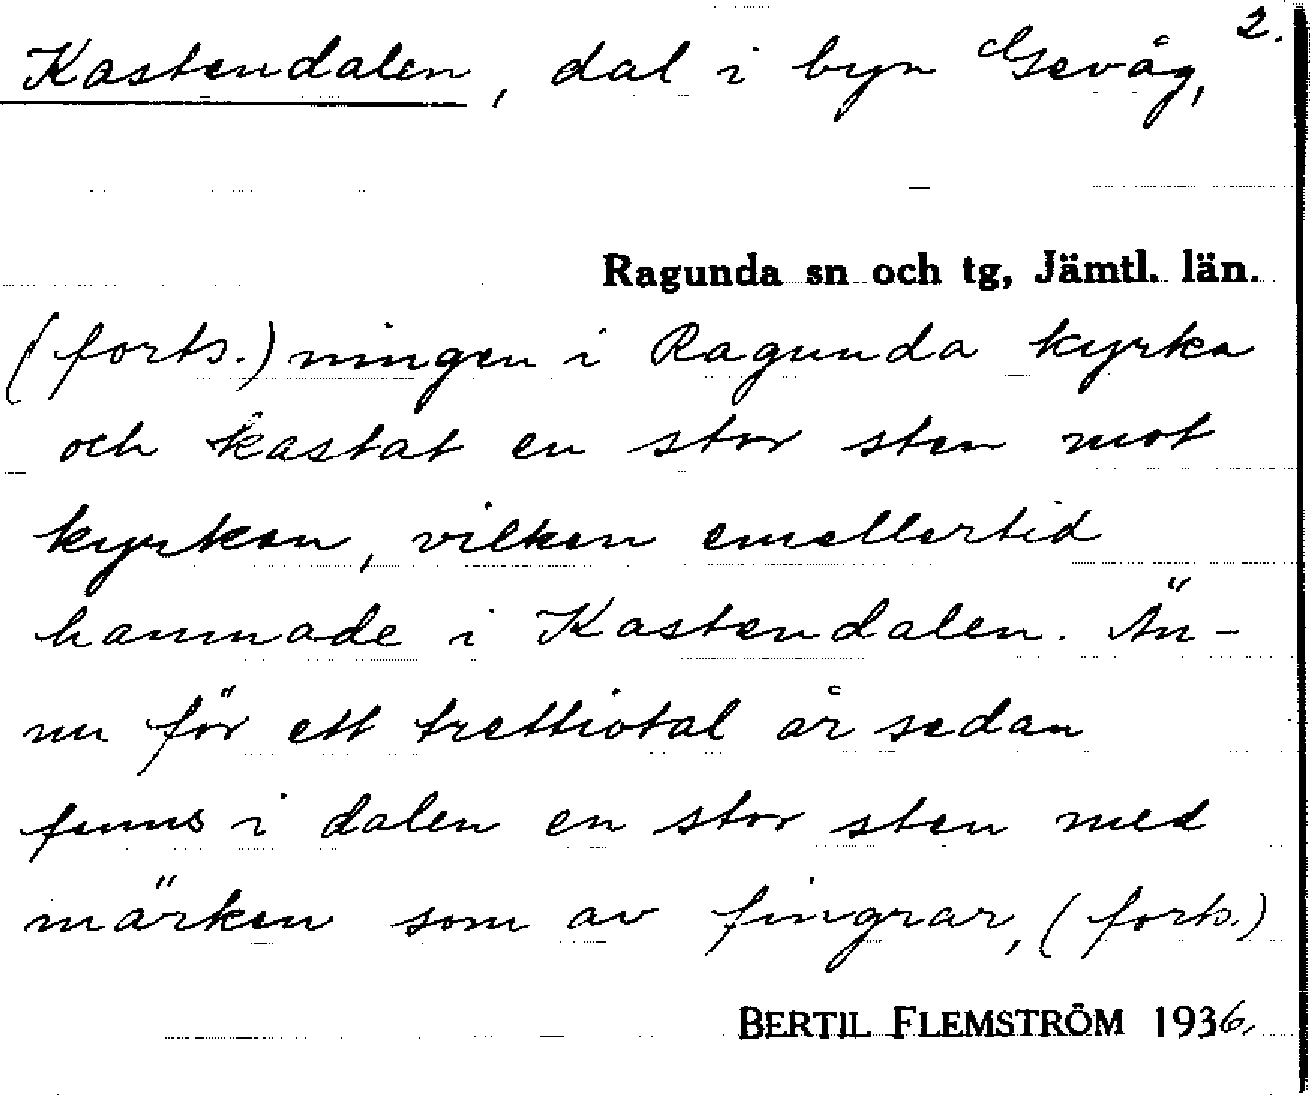 2.
Kastendalen, dal i byn Gevåg,
Ragunda sn och tg, Jämtl. län.
(forts.) ningen i Ragunda kyrka
och kastat en stor sten mot
kyrkan, vilken emellertid
hamnade i Kastendalen. Än-
nu för ett trettiotal år sedan
funns i dalen en stor sten med
märken som av fingrar, (forts.)
BERTIL FLEMSTRÖM 1936.